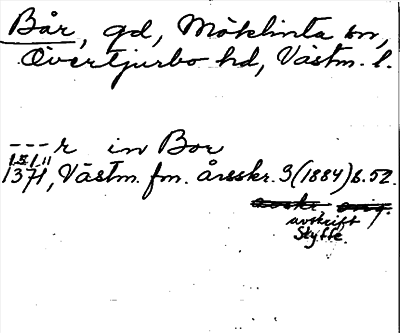 Bår, gd, Möklinta sn,
Övertjurbo hd, Västm. l.
---r in Bor
15/11
1371, Västm. fm. årsskr. 3 (1884) s. 52.
avskr. orig.
avskrift
Styffe.